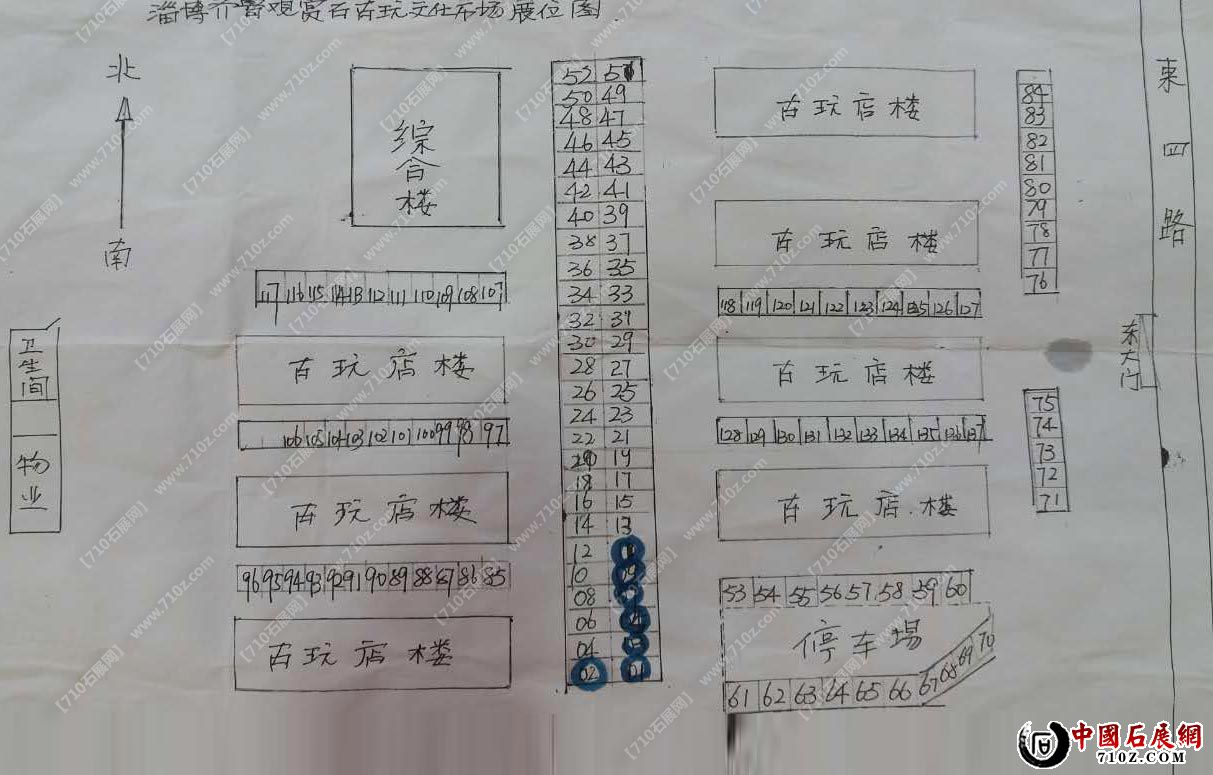 淄博齐鲁观赏石古玩文化市场展位图
北
南
综合楼
52 51
50 49
48 47
46 45
44 43
42 41
40 39
38 37
36 35
34 33
32 31
30 29
28 27
26 25
24 23
22 21
20 19
18 17
16 15
14 13
12
10 09
08
06
04
02 01
古玩店楼
古玩店楼
118 119 120 121 122 123 124 125 126 127
古玩店楼
128 129 130 131 132 133 134 135 136 137
古玩店.楼
53 54 55 56 57 58 59 60
停车场
61 62 63 64 65 66 67 68 69 70
117 116 115 114 113 112 111 110 109 108 107
古玩店楼
106 105 104 103 102 101 100 99 98 97
古玩店楼
96 95 94 93 92 91 90 89 88 87 86 85
古玩店楼
卫生间
物业
84
83
82
81
80
79
78
77
76
75
74
73
72
71
东大门
東四路
【710石展网】
www.710z.com
中國石展網
710Z.COM